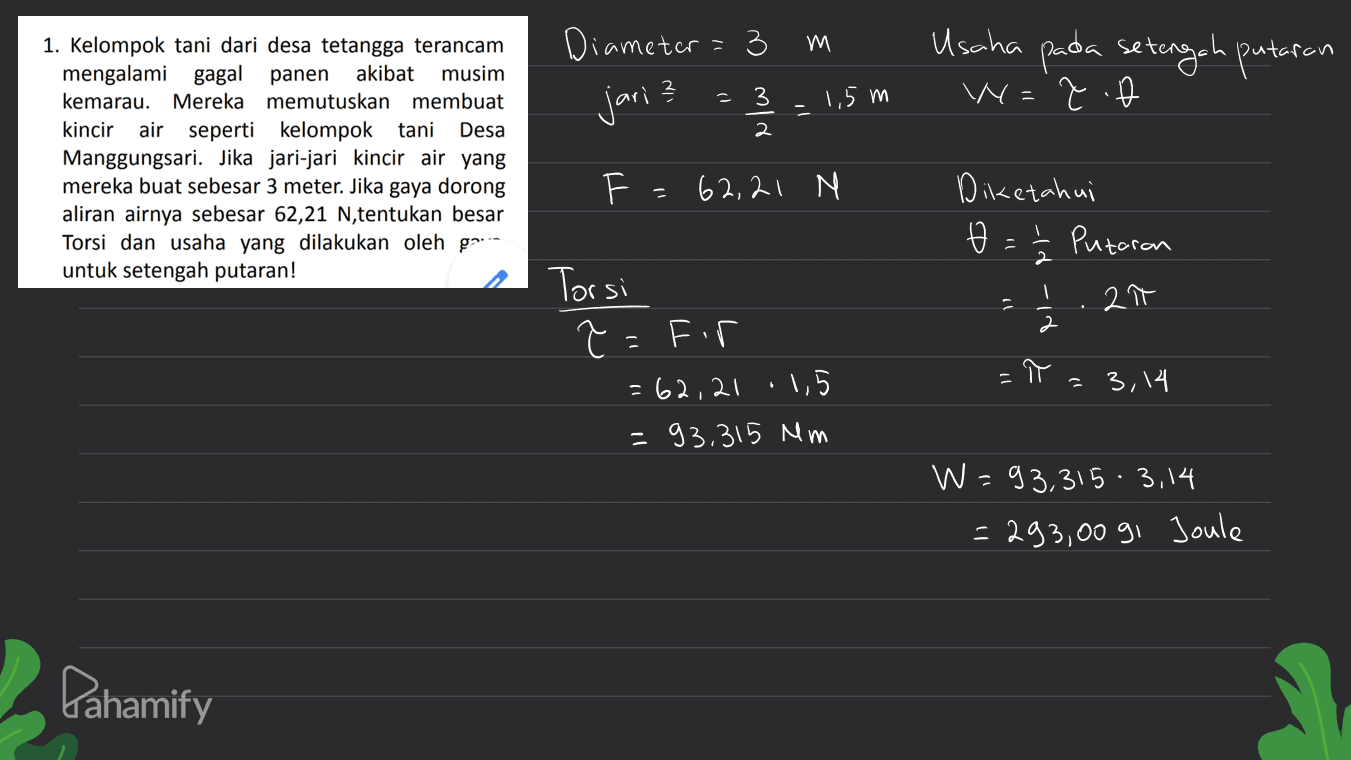 1. Kelompok tani dari desa tetangga terancam
mengalami gagal panen akibat musim
kemarau. Mereka memutuskan membuat
kincir air seperti kelompok tani Desa
Manggungsari. Jika jari-jari kincir air yang
mereka buat sebesar 3 meter. Jika gaya dorong
aliran airnya sebesar 62,21 N,tentukan besar
Torsi dan usaha yang dilakukan oleh
untuk setengah putaran!
Diameter = 3 m
jari² = 3/2 = 1,5 m
F = 62,21 N
Torsi
τ = F.r
= 62,21 . 1,5
= 93,315 Nm
Usaha pada setengah putaran
W = τ . θ
Diketahui
θ = 1/2 Putaran
= 1/2 . 2π
= π = 3,14
W = 93,315 . 3,14
= 293,0091 Joule
Pahamify